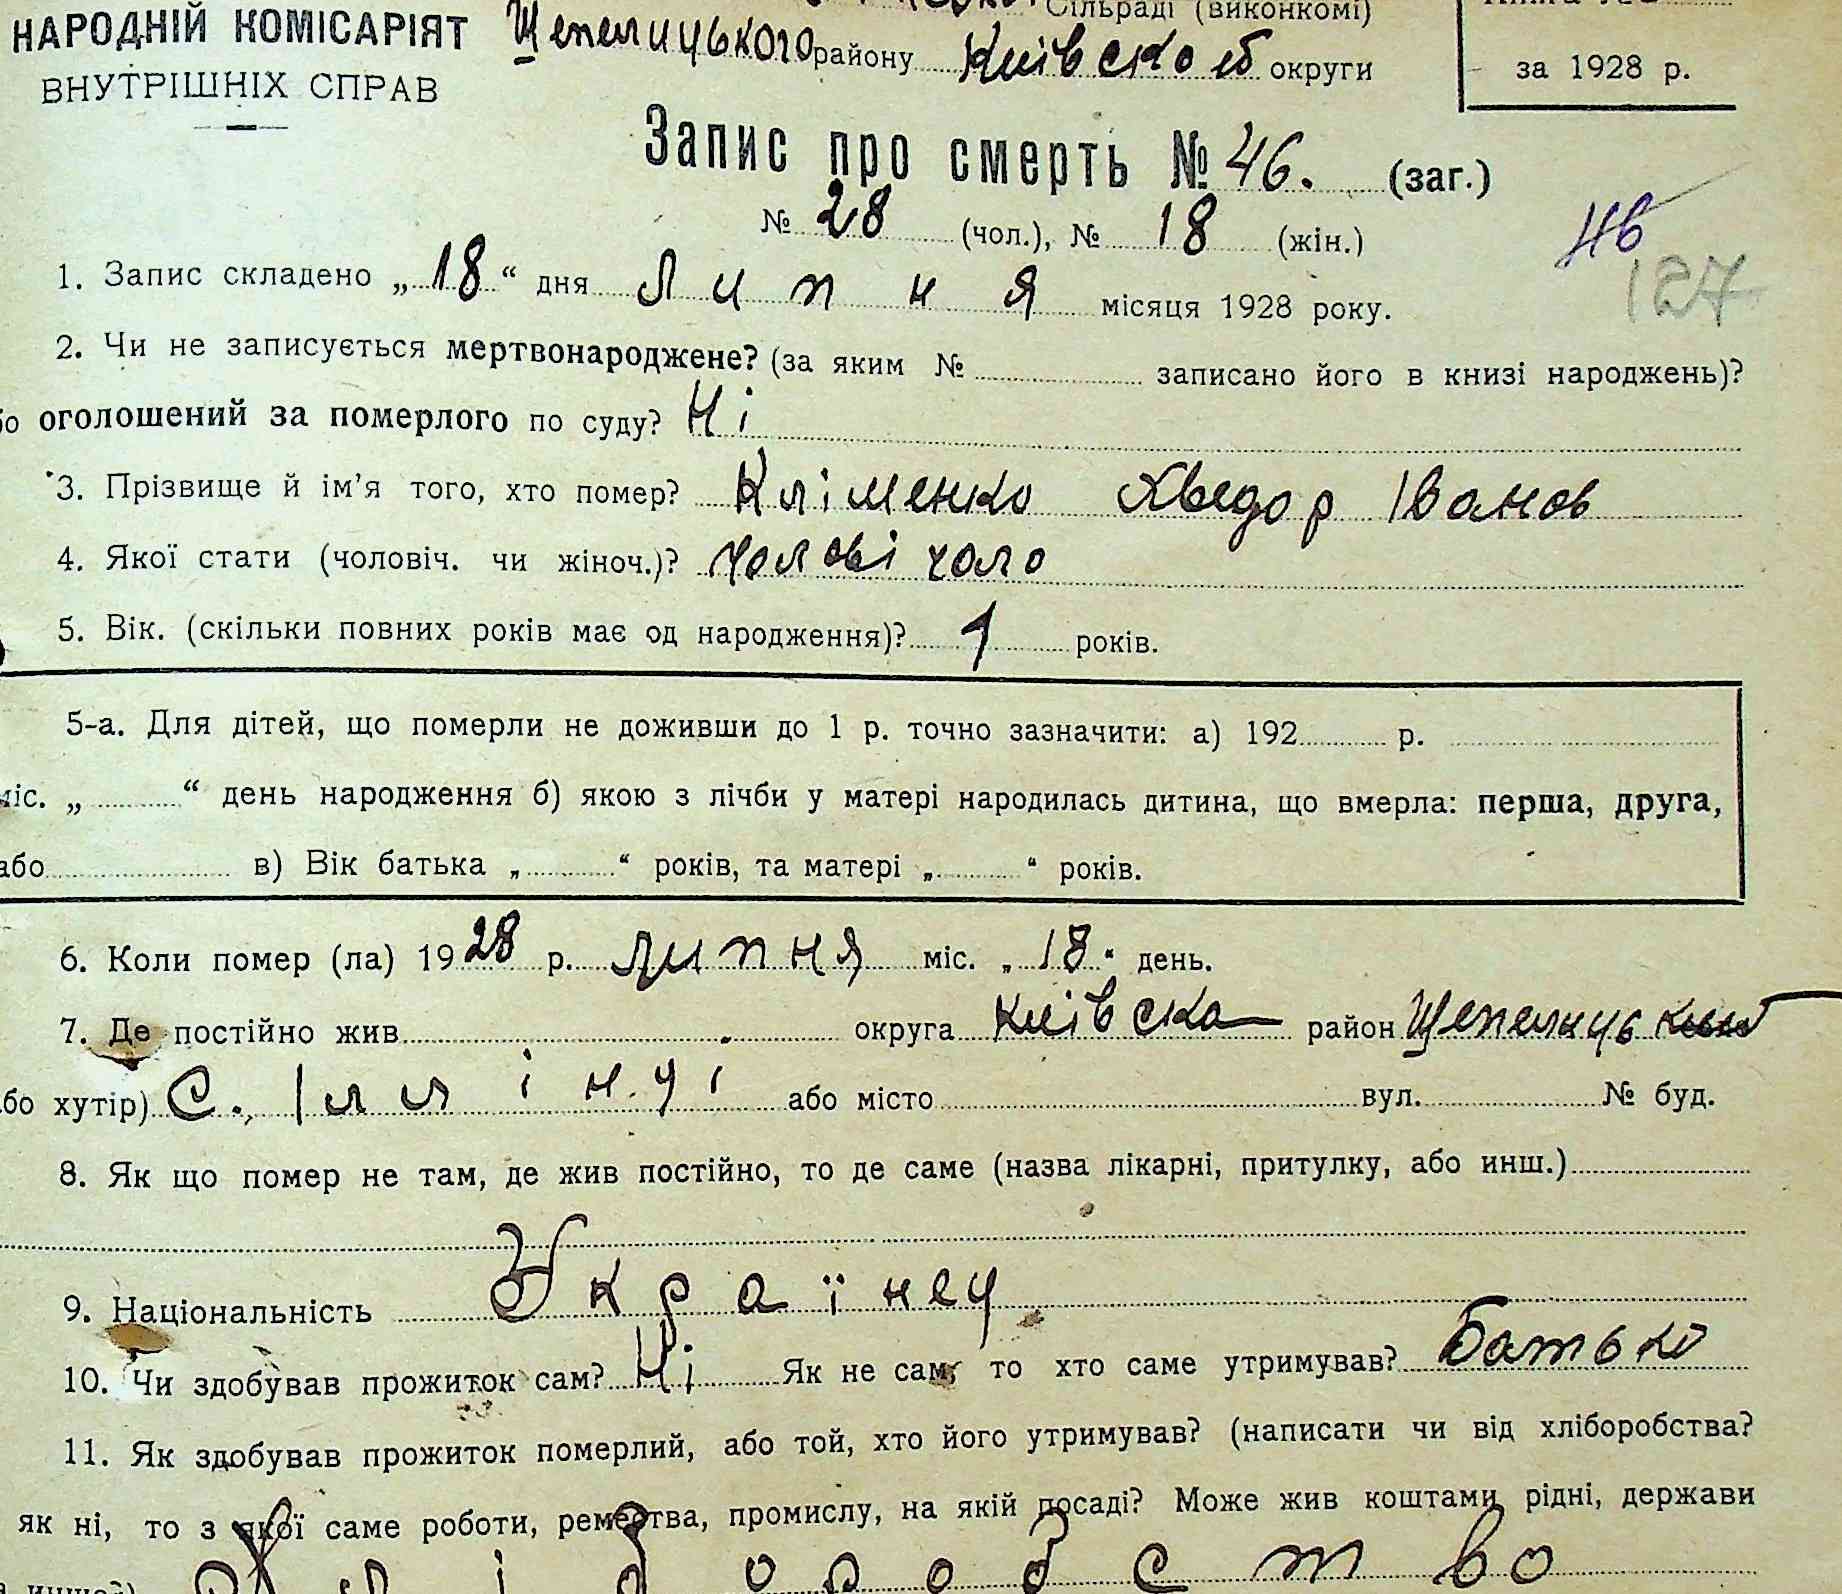 Сільраді (виконкомі)
НАРОДНІЙ КОМІСАРІЯТ Щепелицького району Київскоі округи
ВНУТРІШНІХ СПРАВ за 1928 р.
Запис про смерть № 46. (заг.)
№ 28 (чол.), № 18 (жін.)
46
127
1. Запис складено „18“ дня Липня місяця 1928 року.
2. Чи не записується мертвонароджене? (за яким № записано його в книзі народжень)?
бо оголошений за померлого по суду? Ні
3. Прізвище й ім'я того, хто помер? Кліменко Хведор Іванов
4. Якої стати (чоловіч. чи жіноч.)? Чоловічого
5. Вік. (скільки повних років має од народження)? 1 років.
5-а. Для дітей, що померли не доживши до 1 р. точно зазначити: а) 192 р.
міс. „ “ день народження б) якою з лічби у матері народилась дитина, що вмерла: перша, друга,
або в) Вік батька „ “ років, та матері „ “ років.
6. Коли помер (ла) 1928 р. липня міс. „18“ день.
7. Де постійно жив округа Київска район Щепелицький
бо хутір) С. Іллінці або місто вул. № буд.
8. Як що помер не там, де жив постійно, то де саме (назва лікарні, притулку, або инш.)
9. Національність Українец
10. Чи здобував прожиток сам? Ні Як не сам, то хто саме утримував? Батько
11. Як здобував прожиток померлий, або той, хто його утримував? (написати чи від хліборобства?
як ні, то з якої саме роботи, ремества, промислу, на якій посаді? Може жив коштами рідні, держави
Хліборобство